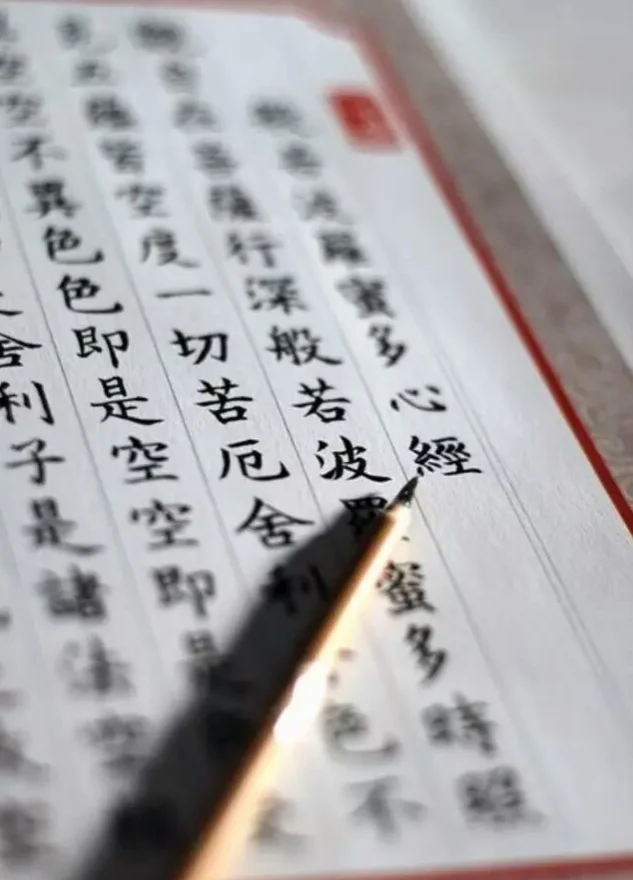 般若波羅蜜多心經
觀自在菩薩行深般若波羅蜜多時照
見五蘊皆空度一切苦厄舍利色不
異空空不異色色即是空空即是
舍利子是諸法空